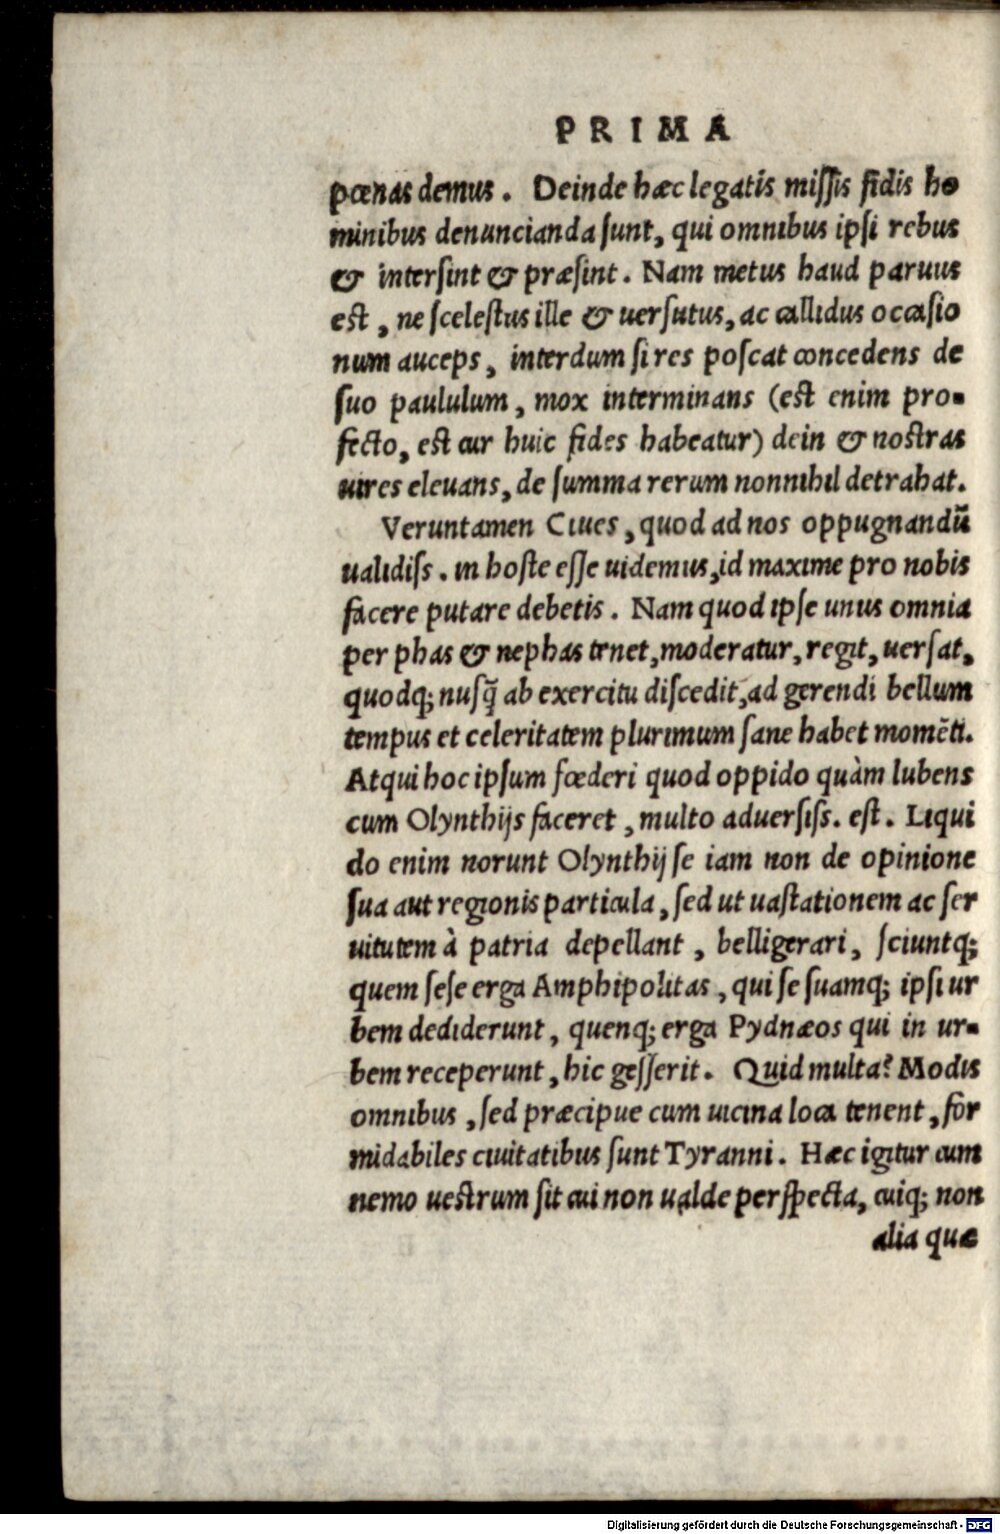 PRIMA
pœnas demus. Deinde hæc legatis missis fidis ho
minibus denuncianda sunt, qui omnibus ipsi rebus
& intersint & præsint. Nam metus haud paruus
est, ne scelestus ille & uersutus, ac callidus occasio
num auceps, interdum si res poscat concedens de
suo paululum, mox interminans (est enim pro-
fecto, est cur huic fides habeatur) dein & nostras
uires eleuans, de summa rerum nonnihil detrahat.
Veruntamen Ciues, quod ad nos oppugnandū
ualidiss. in hoste esse uidemus, id maxime pro nobis
facere putare debetis. Nam quod ipse unus omnia
per phas & nephas tenet, moderatur, regit, uersat,
quodq; nusq̃ ab exercitu discedit, ad gerendi bellum
tempus et celeritatem plurimum sane habet momēti.
Atqui hoc ipsum fœderi quod oppido quàm lubens
cum Olynthijs faceret, multo aduersiss. est. Liqui
do enim norunt Olynthij se iam non de opinione
sua aut regionis particula, sed ut uastationem ac ser
uitutem à patria depellant, belligerari, sciuntq;
quem sese erga Amphipolitas, qui se suamq; ipsi ur
bem dediderunt, quenq; erga Pydnæos qui in ur-
bem receperunt, hic gesserit. Quid multa? Modis
omnibus, sed præcipue cum uicina loca tenent, for
midabiles ciuitatibus sunt Tyranni. Hæc igitur cum
nemo uestrum sit cui non ualde perspecta, cuiq; non
alia quæ
Digitalisierung gefördert durch die Deutsche Forschungsgemeinschaft - DFG